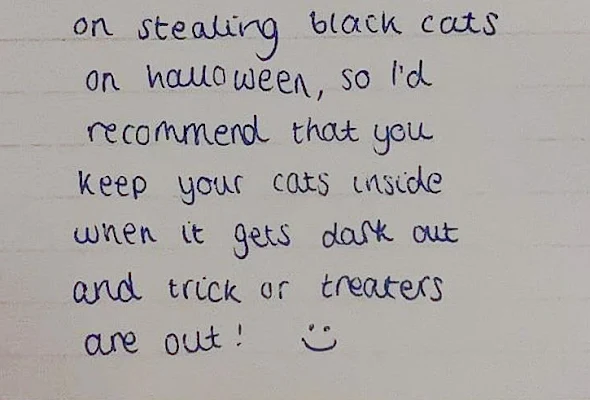 on stealing black cats
on halloween, so I'd
recommend that you
keep your cats inside
when it gets dark out
and trick or treaters
are out! :)